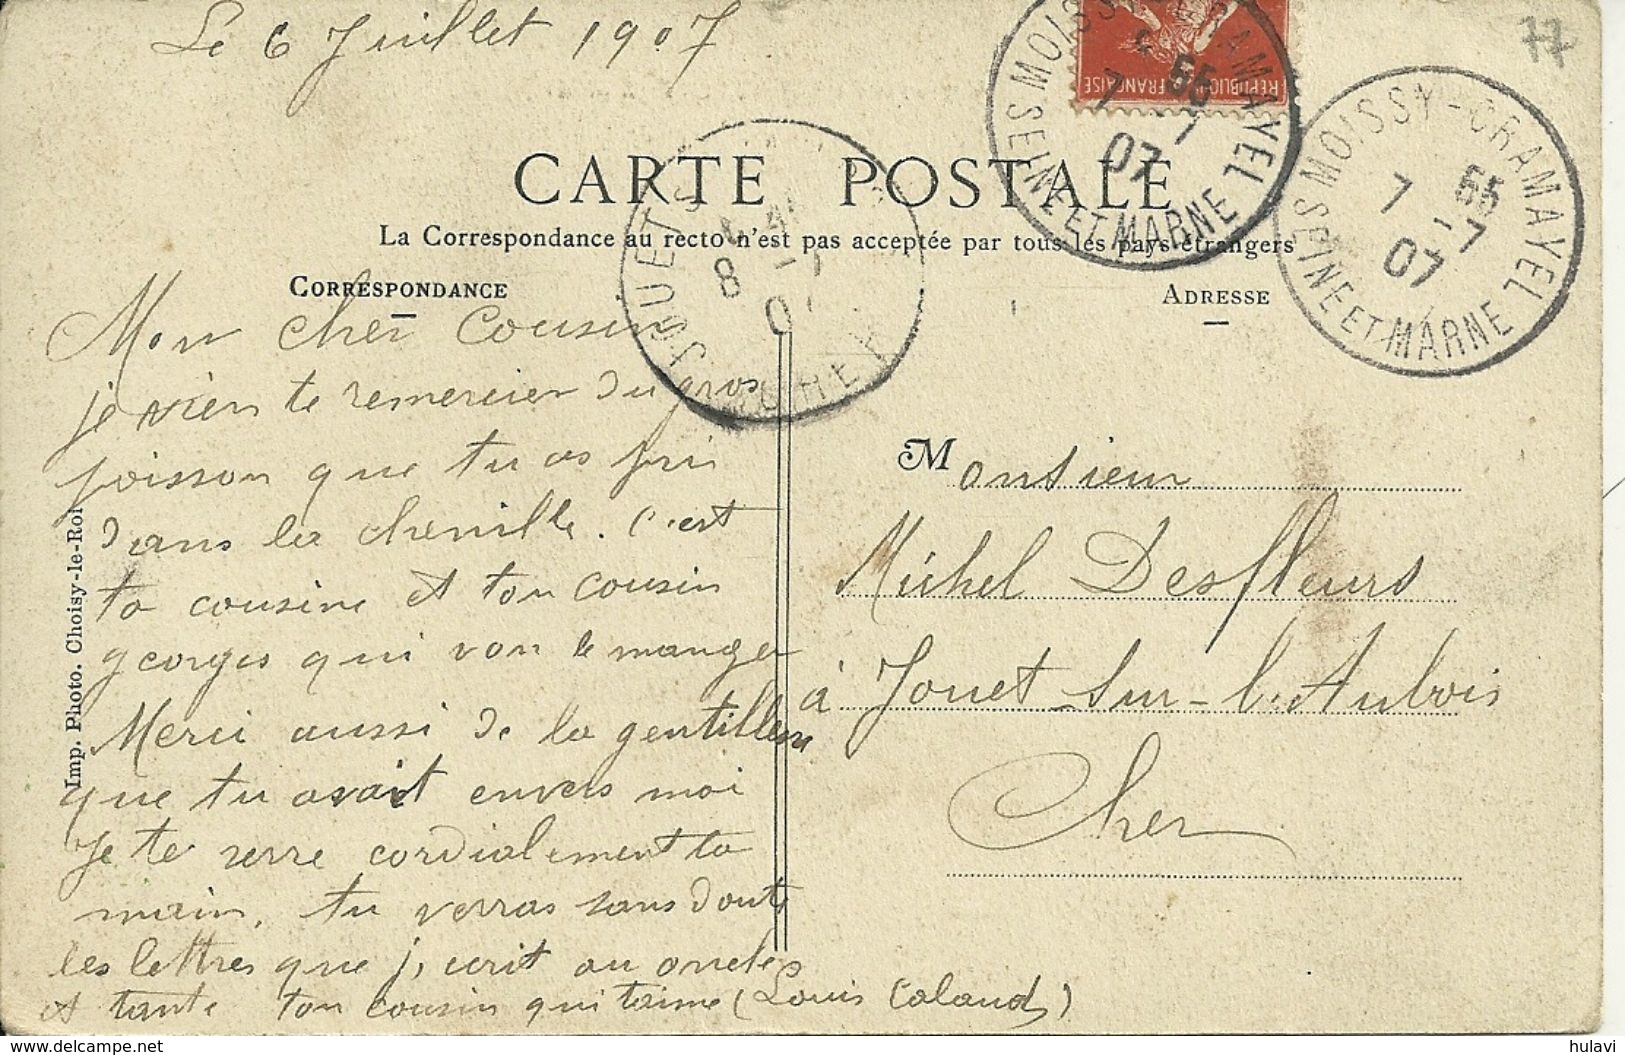 Le 6 Juillet 1907
77
REPUBLIQUE FRANÇAISE
MOISSY-CRAMAYEL
7 55
7-7
07
SEINE ET MARNE
MOISSY-CRAMAYEL
7 55
-7
07
SEINE ET MARNE
JOUET S
8
07
CARTE POSTALE
La Correspondance au recto n'est pas acceptée par tous les pays étrangers
CORRESPONDANCE
ADRESSE
Mon cher Cousin
je vien te remercier du gros
poisson que tu as pri
dans la chenille. C'est
ta cousine et ton cousin
georges qui von le manger
Merci aussi de la gentillesse
que tu avait envers moi
Je te serre cordialement ta
main, tu verras sans doute
les lettres que j'ecrit au oncles
et tante ton cousin qui t'aime (Louis Caland)
Monsieur
Michel Desfleurs
à Jouet-sur-l'Aubois
Cher
Imp. Photo. Choisy-le-Roi
hulavi
www.delcampe.net